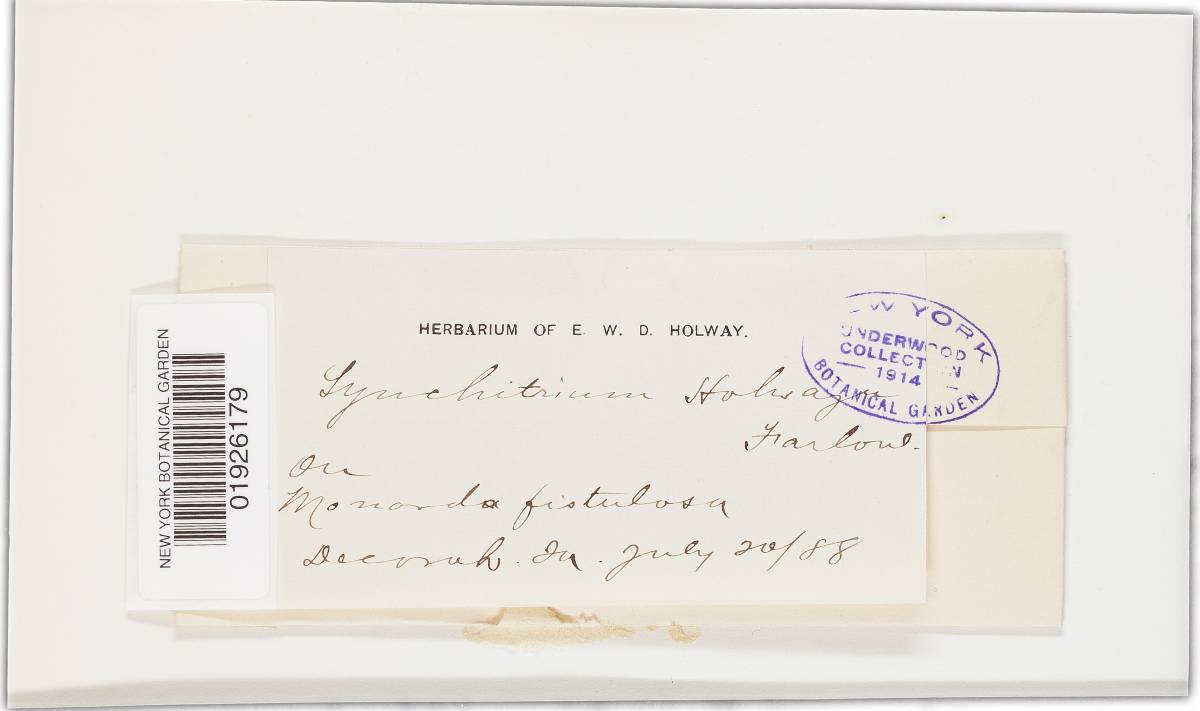 HERBARIUM OF E. W. D. HOLWAY.
Synchitrium Holwayi
Farlow.
On
Monarda fistulosa
Decorah. Ia. July 20/88
NEW YORK BOTANICAL GARDEN
01926179
NEW YORK
UNDERWOOD
COLLECTION
1914
BOTANICAL GARDEN